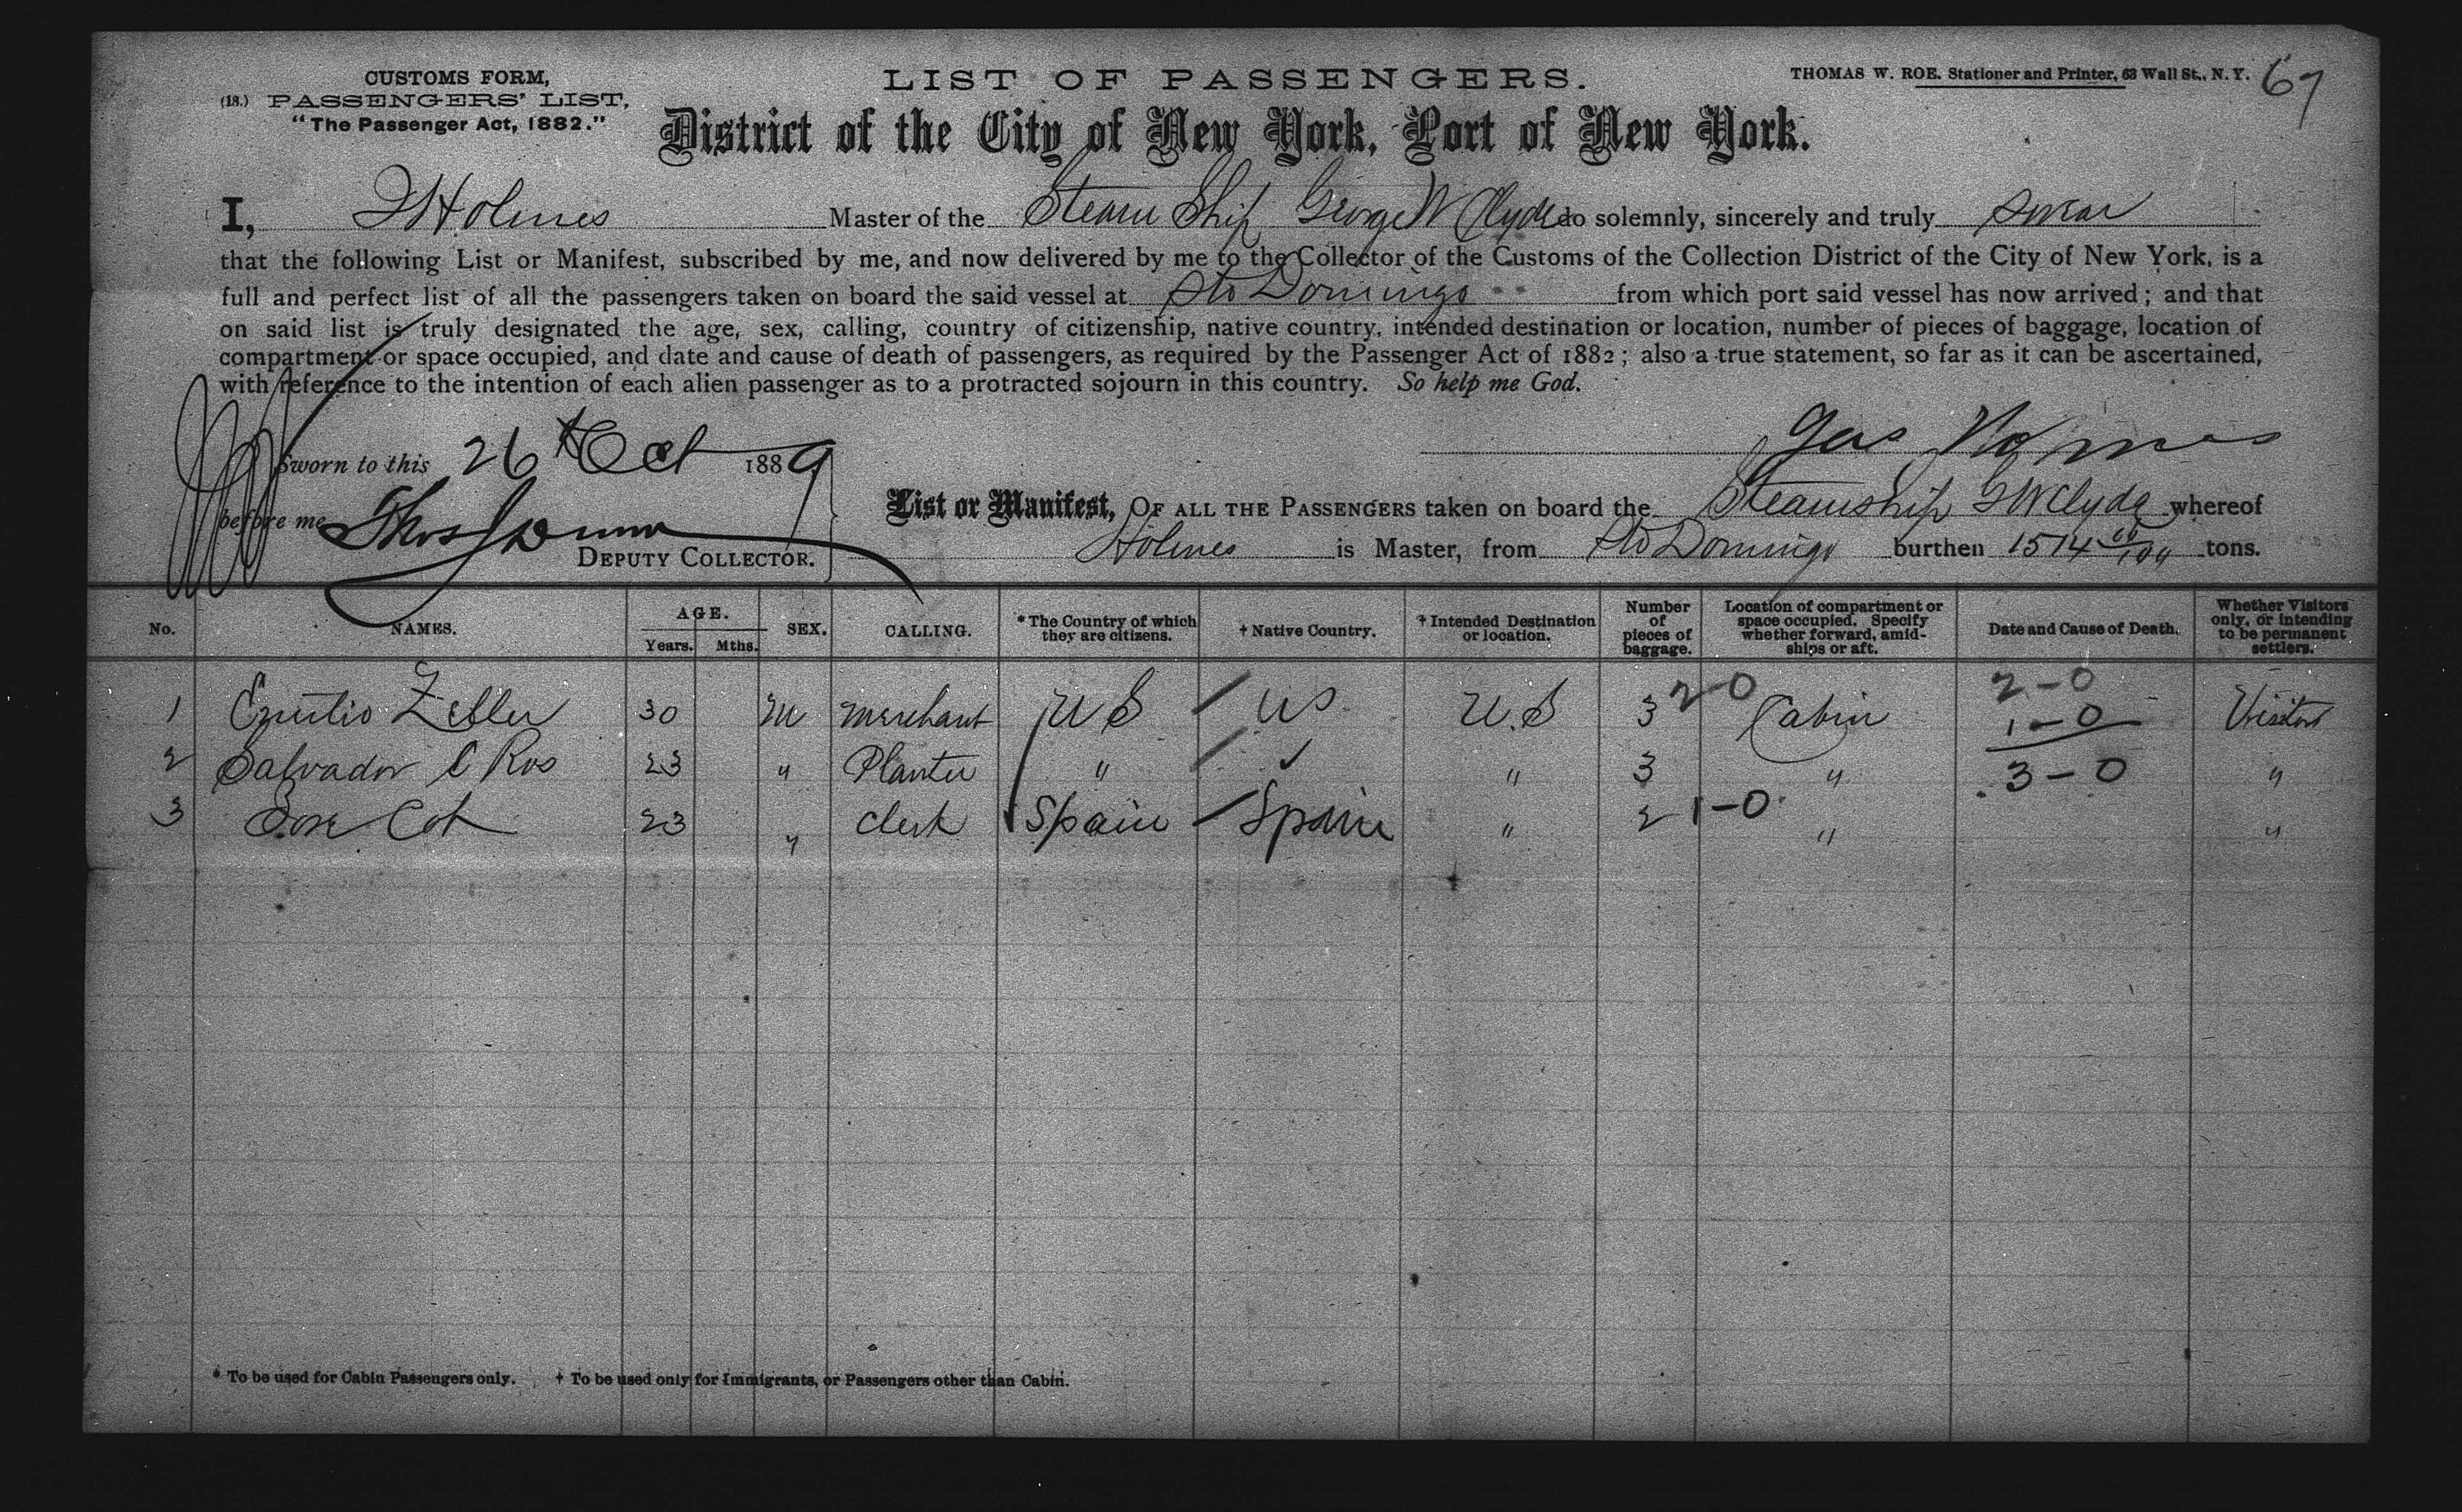 CUSTOMS FORM,
(18.) PASSENGERS' LIST,
"The Passenger Act, 1882."
LIST OF PASSENGERS.
THOMAS W. ROE. Stationer and Printer, 63 Wall St., N. Y.
67
District of the City of New York, Port of New York.
I, Holmes Master of the Steam Ship George W Clyde do solemnly, sincerely and truly swear
that the following List or Manifest, subscribed by me, and now delivered by me to the Collector of the Customs of the Collection District of the City of New York, is a
full and perfect list of all the passengers taken on board the said vessel at Sto Domingo from which port said vessel has now arrived; and that
on said list is truly designated the age, sex, calling, country of citizenship, native country, intended destination or location, number of pieces of baggage, location of
compartment or space occupied, and date and cause of death of passengers, as required by the Passenger Act of 1882; also a true statement, so far as it can be ascertained,
with reference to the intention of each alien passenger as to a protracted sojourn in this country. So help me God.
Sworn to this 26th Oct 1889
Holmes
before me Thos
DEPUTY COLLECTOR.
List or Manifest, OF ALL THE PASSENGERS taken on board the Steamship G W Clyde whereof
Holmes is Master, from Sto Domingo burthen 1574 tons.
No. NAMES. AGE. Years. Mths. SEX. CALLING. * The Country of which they are citizens. † Native Country. † Intended Destination or location. Number of pieces of baggage. Location of compartment or space occupied. Specify whether forward, amidships or aft. Date and Cause of Death. Whether Visitors only, or intending to be permanent settlers.
1 30 M Merchant U S / U S U.S 3 2-0 Cabin 2-0 1-0 Visitor
2 Salvador C Ros 23 " Planter " / ✓ " 3 " 3-0 "
3 Jose Cot 23 " Clerk Spain / Spain " 2 1-0 " "
* To be used for Cabin Passengers only. † To be used only for Immigrants, or Passengers other than Cabin.